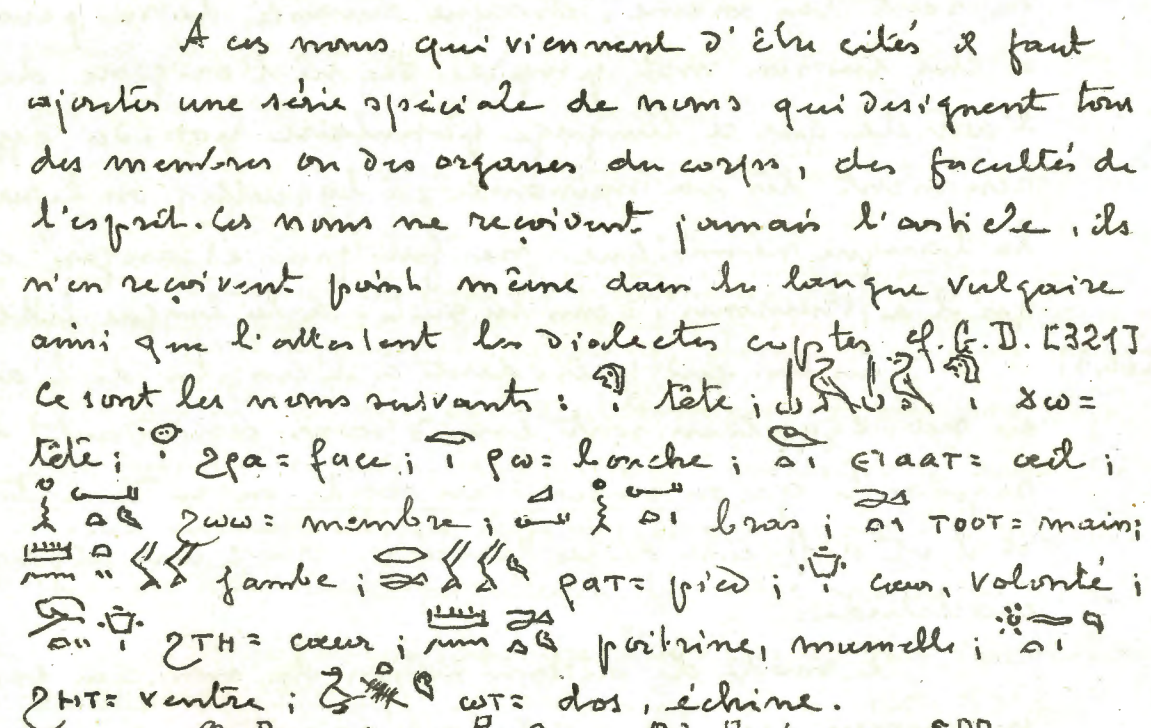 A ces noms qui viennent d'être cités il faut
ajouter une série spéciale de noms qui designent tous
des membres ou des organes du corps, des facultés de
l'esprit. Ces noms ne reçoivent jamais l'article, ils
n'en reçoivent point même dans la langue vulgaire
ainsi que l'attestent les dialectes coptes cf. G.D. [321]
Ce sont les noms suivants : 𓁶𓏤 tête ; ϫω=
tête ; 𓁷𓏤 ϩⲣⲁ= face ; 𓂋𓏤 ⲣⲱ= bouche ; ⲉⲓⲁⲁⲧ= œil ;
ϩⲱⲱ= membre ; bras ; 𓂧𓏏𓏤 ⲧⲟⲟⲧ= main ;
jambe ; ⲣⲁⲧ= pied ; 𓄣𓏤 cœur, volonté ;
ϩⲧⲏ= cœur ; poitrine, mamelle ;
ϩⲏⲧ= ventre ; ⲱⲧ= dos, échine.